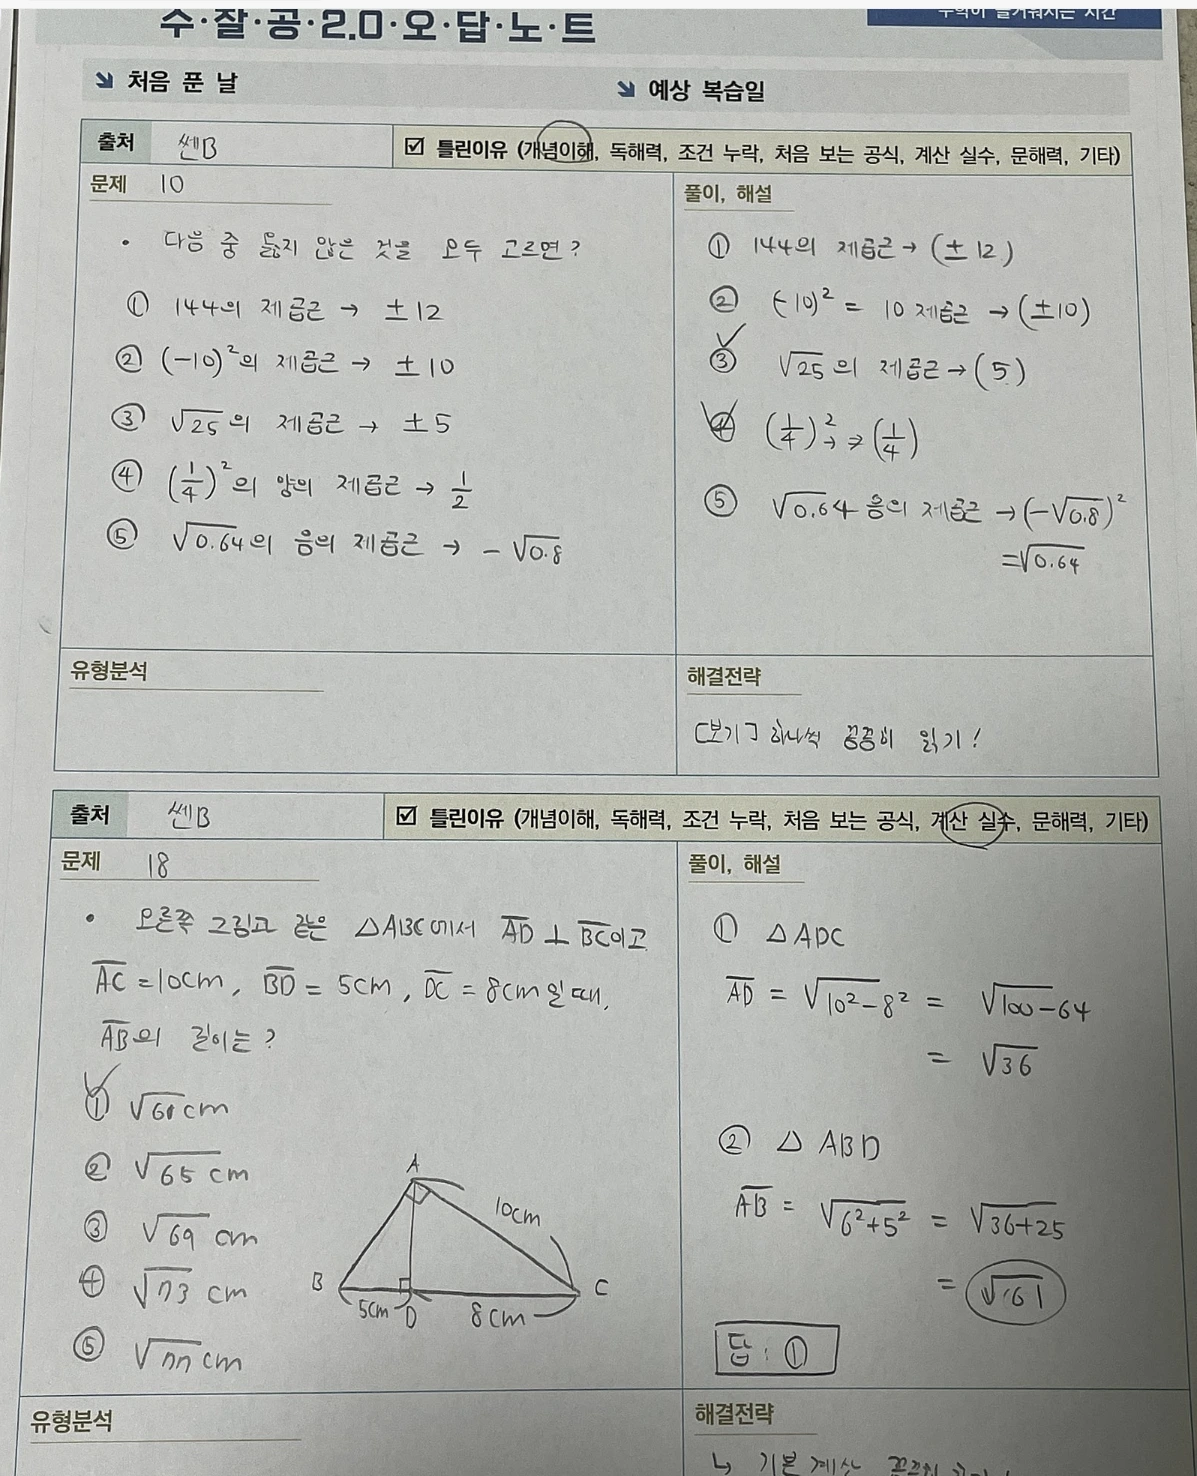 수·잘·공·2.0·오·답·노·트
수학이 즐거워지는 시간
처음 푼 날
예상 복습일
출처 쎈B
☑ 틀린이유 (개념이해, 독해력, 조건 누락, 처음 보는 공식, 계산 실수, 문해력, 기타)
문제 10
· 다음 중 옳지 않은 것을 모두 고르면?
① 144의 제곱근 → ±12
② (-10)²의 제곱근 → ±10
③ √25의 제곱근 → ±5
④ (1/4)²의 양의 제곱근 → 1/2
⑤ √0.64의 음의 제곱근 → -√0.8
풀이, 해설
① 144의 제곱근 → (±12)
② (-10)² = 10 제곱근 → (±10)
③ √25의 제곱근 → (5)
④ (1/4)² → → (1/4)
⑤ √0.64 음의 제곱근 → (-√0.8)²
=√0.64
유형분석
해결전략
[보기] 하나씩 꼼꼼히 읽기!
출처 쎈B
☑ 틀린이유 (개념이해, 독해력, 조건 누락, 처음 보는 공식, 계산 실수, 문해력, 기타)
문제 18
· 오른쪽 그림과 같은 △ABC에서 AD ⊥ BC이고
AC = 10cm, BD = 5cm, DC = 8cm일 때,
AB의 길이는?
① √61cm
② √65cm
③ √69cm
④ √73 cm
⑤ √77cm
A
10cm
B
C
5cm
D
8cm
풀이, 해설
① △ADC
AD = √10²-8² = √100-64
= √36
② △ABD
AB = √6²+5² = √36+25
= √61
답 : ①
유형분석
해결전략
↳ 기본 계산